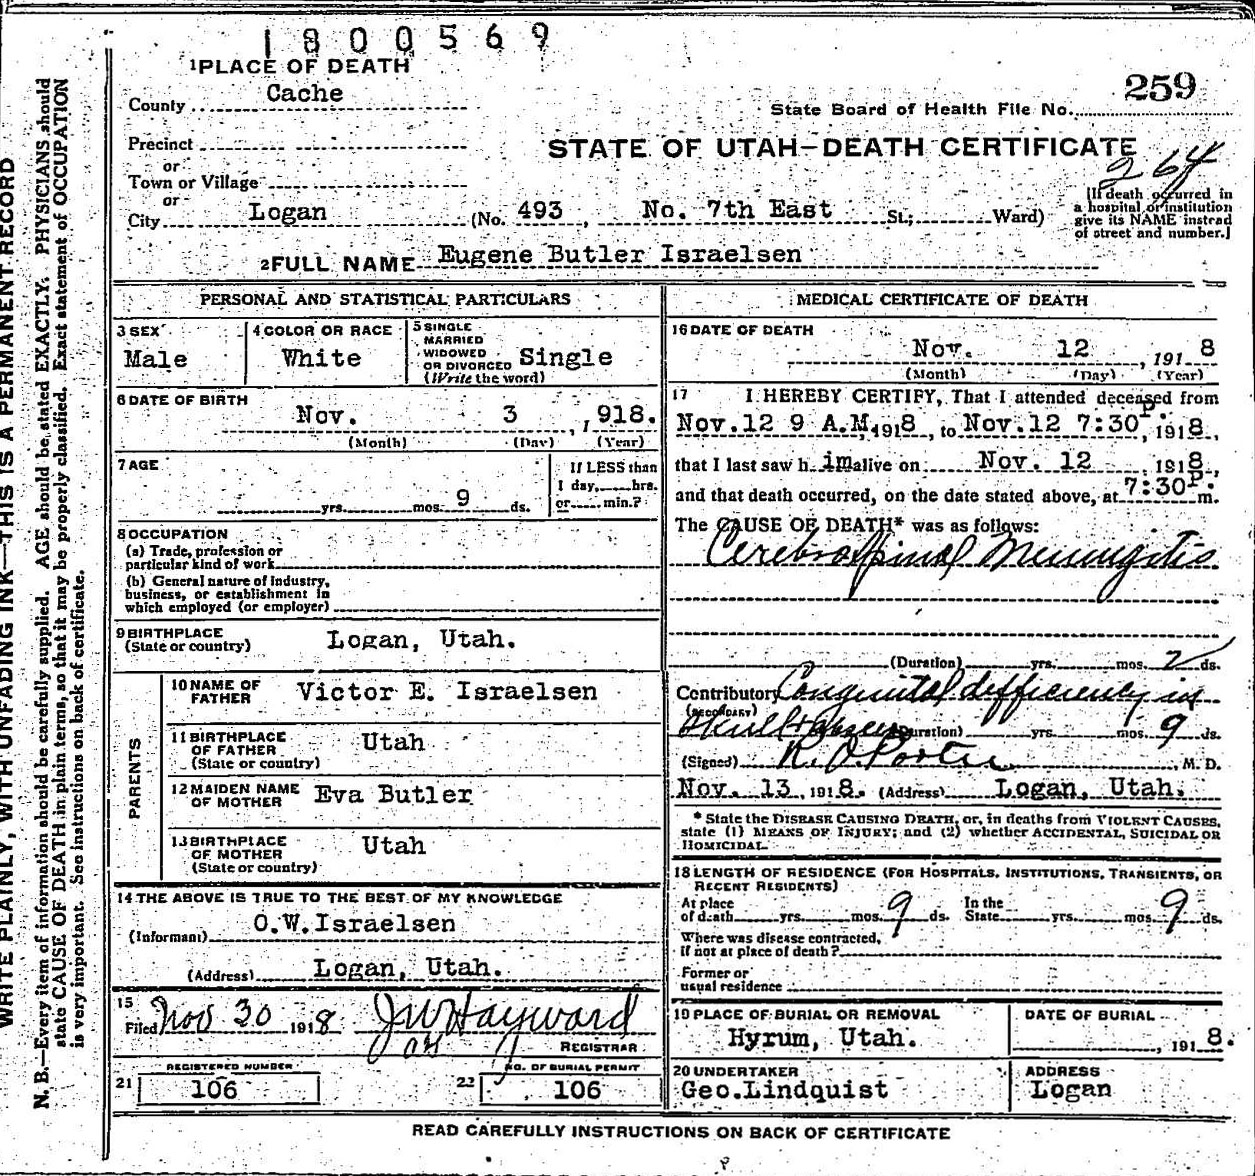 1800569
1 PLACE OF DEATH
County Cache
259
State Board of Health File No.
Precinct
STATE OF UTAH—DEATH CERTIFICATE
264
or
Town or Village
or
City Logan (No. 493, No. 7th East St.; Ward)
[If death occurred in
a hospital or institution
give its NAME instead
of street and number.]
2 FULL NAME Eugene Butler Israelsen
PERSONAL AND STATISTICAL PARTICULARS
3 SEX
Male
4 COLOR OR RACE
White
5 SINGLE
MARRIED
WIDOWED
OR DIVORCED Single
(Write the word)
6 DATE OF BIRTH
Nov. 3, 1918.
(Month) (Day) (Year)
7 AGE
yrs. mos. 9 ds.
If LESS than
1 day, hrs.
or min.?
8 OCCUPATION
(a) Trade, profession or
particular kind of work
(b) General nature of industry,
business, or establishment in
which employed (or employer)
9 BIRTHPLACE
(State or country) Logan, Utah.
PARENTS
10 NAME OF
FATHER Victor E. Israelsen
11 BIRTHPLACE
OF FATHER Utah
(State or country)
12 MAIDEN NAME
OF MOTHER Eva Butler
13 BIRTHPLACE
OF MOTHER Utah
(State or country)
14 THE ABOVE IS TRUE TO THE BEST OF MY KNOWLEDGE
(Informant) O.W.Israelsen
(Address) Logan, Utah.
15
Filed Nov 30 1918 J W Hayward
REGISTRAR
REGISTERED NUMBER
21 106
NO. OF BURIAL PERMIT
22 106
MEDICAL CERTIFICATE OF DEATH
16 DATE OF DEATH
Nov. 12, 1918
(Month) (Day) (Year)
17 I HEREBY CERTIFY, That I attended deceased from
Nov.12 9 A.M, 1918, to Nov.12 7:30 P., 1918,
that I last saw h im alive on Nov. 12, 1918,
and that death occurred, on the date stated above, at 7:30 P. m.
The CAUSE OF DEATH* was as follows:
Cerebrospinal Meningitis
(Duration) yrs. mos. 2 ds.
Contributory Congenital defficiency in
(SECONDARY)
Skull (Duration) yrs. mos. 9 ds.
(Signed) R. O. Porter, M. D.
Nov. 13, 1918. (Address) Logan, Utah.
* State the DISEASE CAUSING DEATH, or, in deaths from VIOLENT CAUSES,
state (1) MEANS OF INJURY; and (2) whether ACCIDENTAL, SUICIDAL OR
HOMICIDAL.
18 LENGTH OF RESIDENCE (FOR HOSPITALS, INSTITUTIONS, TRANSIENTS, OR
RECENT RESIDENTS)
At place
of death yrs. mos. 9 ds.
In the
State yrs. mos. 9 ds.
Where was disease contracted,
if not at place of death?
Former or
usual residence
19 PLACE OF BURIAL OR REMOVAL
Hyrum, Utah.
DATE OF BURIAL
, 1918.
20 UNDERTAKER
Geo.Lindquist
ADDRESS
Logan
READ CAREFULLY INSTRUCTIONS ON BACK OF CERTIFICATE
WRITE PLAINLY, WITH UNFADING INK—THIS IS A PERMANENT RECORD
N. B.—Every item of information should be carefully supplied. AGE should be stated EXACTLY. PHYSICIANS should
state CAUSE OF DEATH in plain terms, so that it may be properly classified. Exact statement of OCCUPATION
is very important. See instructions on back of certificate.